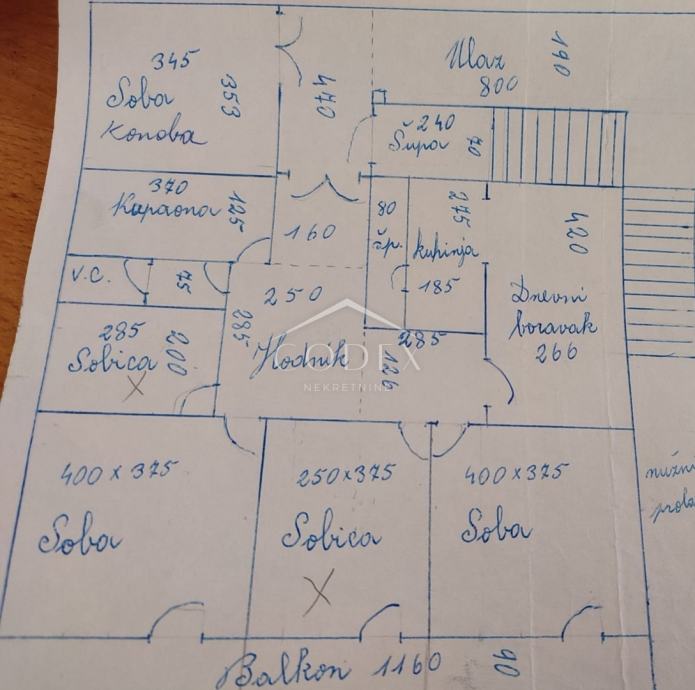 345
Soba
Konoba
353
470
Ulaz
800
190
240
Šupa
70
370
Kupaona
125
160
80
šp.
275
kuhinja
185
420
Dnevni
boravak
266
V.C.
75
250
285
Hodnik
285
126
285
Sobica
200
X
CODEX
NEKRETNINE
400 x 375
Soba
250x375
Sobica
X
400x375
Soba
nužni
Balkon 1160
90